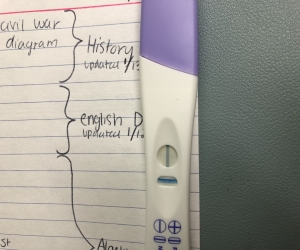 civil war
diagram
History
updated 1/1
english D
updated 1/1
st